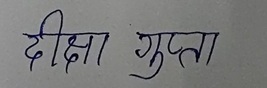 दीक्षा गुप्ता